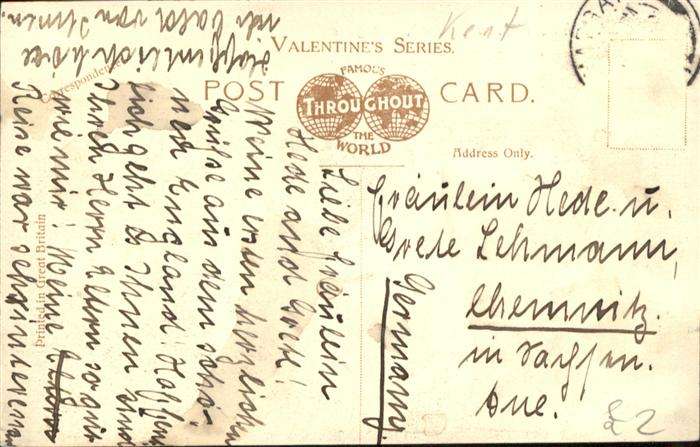 Kent
VALENTINE'S SERIES.
FAMOUS
THROUGHOUT
THE
WORLD
POST CARD.
Correspondence
Address Only.
Printed in Great Britain
Liebe Fräulein
Hede und Grete!
Meine ersten herzlichen
Grüße aus dem schö-
nen England! Hoffent-
lich geht es Ihnen und
Ihren Herrn Eltern so gut
wie mir! Meine
Reise war sehr interess
Hoffentlich höre
ich bald von Ihnen.
Fräulein Hede u.
Grete Lehmann,
Chemnitz.
in Sachsen.
Aue.
Germany.
£2